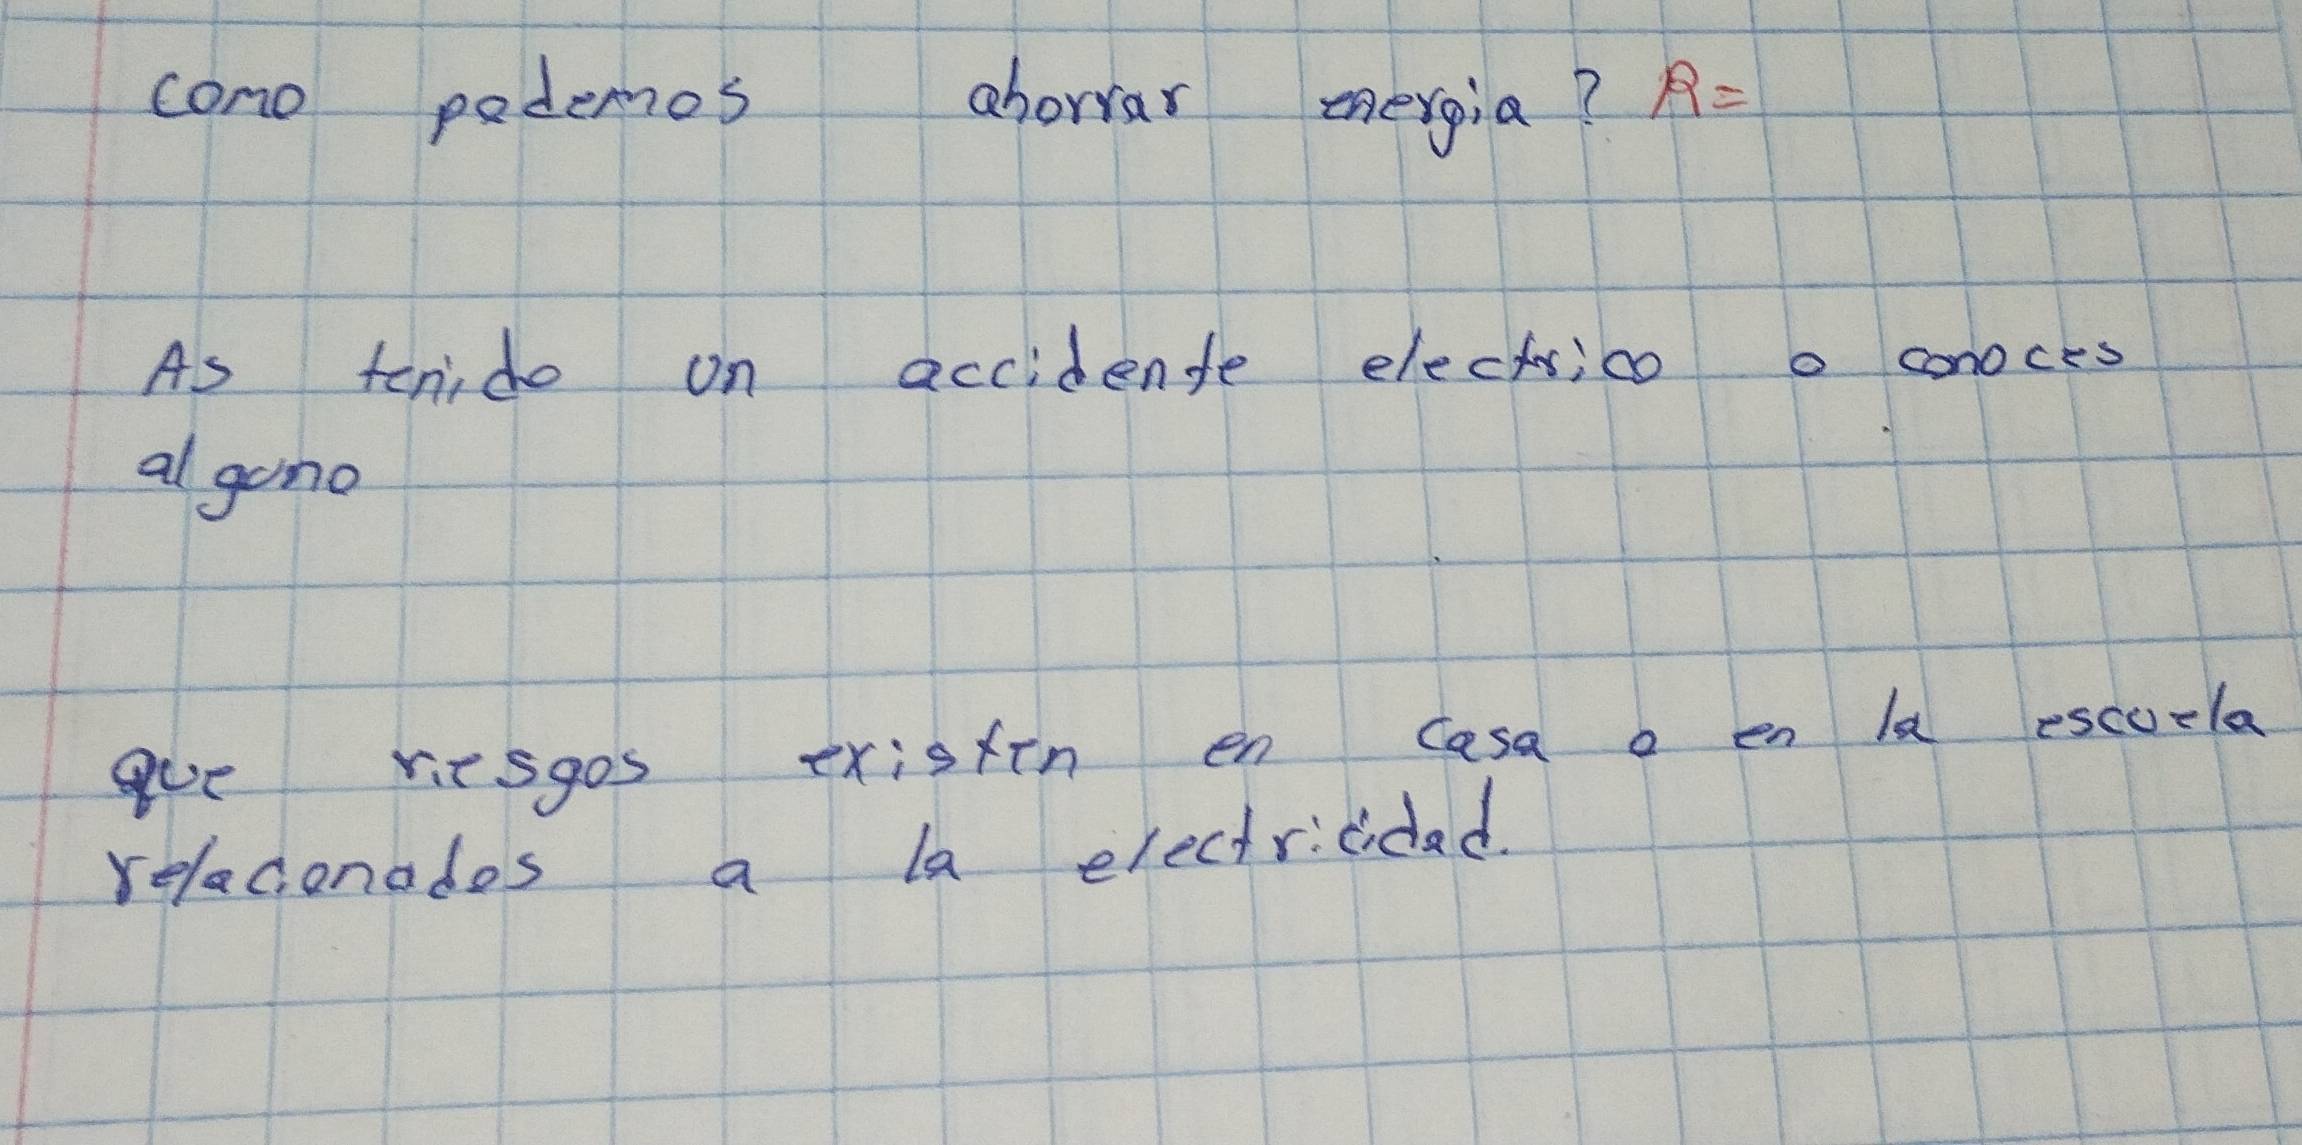 como podemos ahorrar energia? R=
As tenido un accidente electrico o conoces
alguno
Que riesgos existen en casa o en la escuela
relacionados a la electricidad.